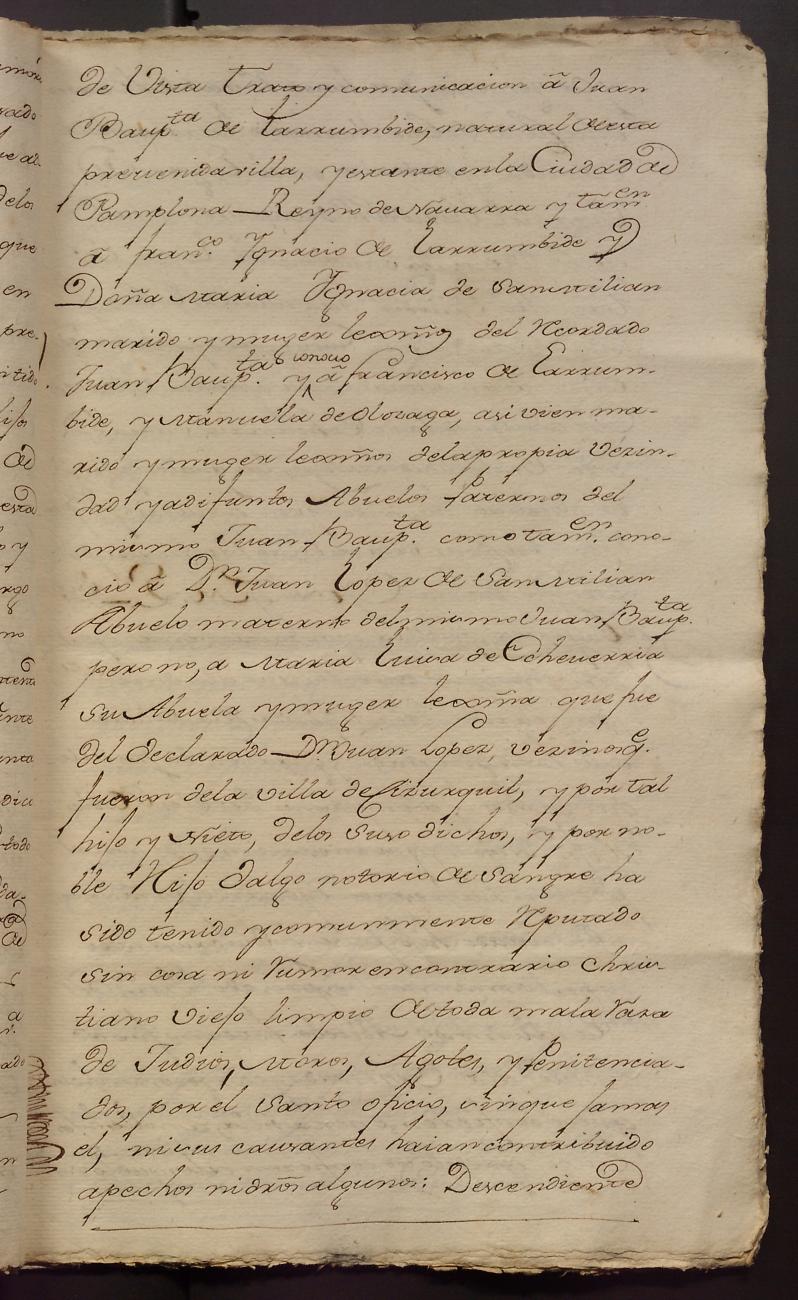 de Vista Trato y comunicacion â Juan
Baup.ta de Larrumbide, natural de esta
prevenida villa, y estante en la Ciudad de
Pamplona Reyno de Navarra y tam.en
â fran.co Ygnacio de Larrumbide y
Doña Maria Ygnacia de San Milian
marido y muger lexm̃os del Recordado
Juan Baup.ta y â Francisco de Larrum-
conocio
bide, y Manuela de Olozaga, asi vien ma-
rido y muger lexm̃os dela propia vezin-
dad ya difuntos Abuelos Paternos del
mismo Juan Baup.ta como tam.en cono-
cio â D.n Juan Lopez de San Milian
Abuelo materno del mismo Juan Baup.ta
pero no, a Maria Luisa de Echeverria
su Abuela y muger lexm̃a que fue
del declarado D.n Juan Lopez, vezinos q.e
fueron dela villa de Cizurquil, y por tal
hijo y Nieto, delos suso dichos, y por no-
ble Hijo dalgo notorio de Sangre ha
sido tenido y comunmente Reputado
sin cosa ni Rumor en contrario chris-
tiano viejo limpio de toda mala Raza
de Judios, Moros, Agotes, y Penitencia-
dos, por el Santo oficio, sin que jamas
el, ni sus causantes haian contribuido
apechos ni dr̃os algunos: Descendiente